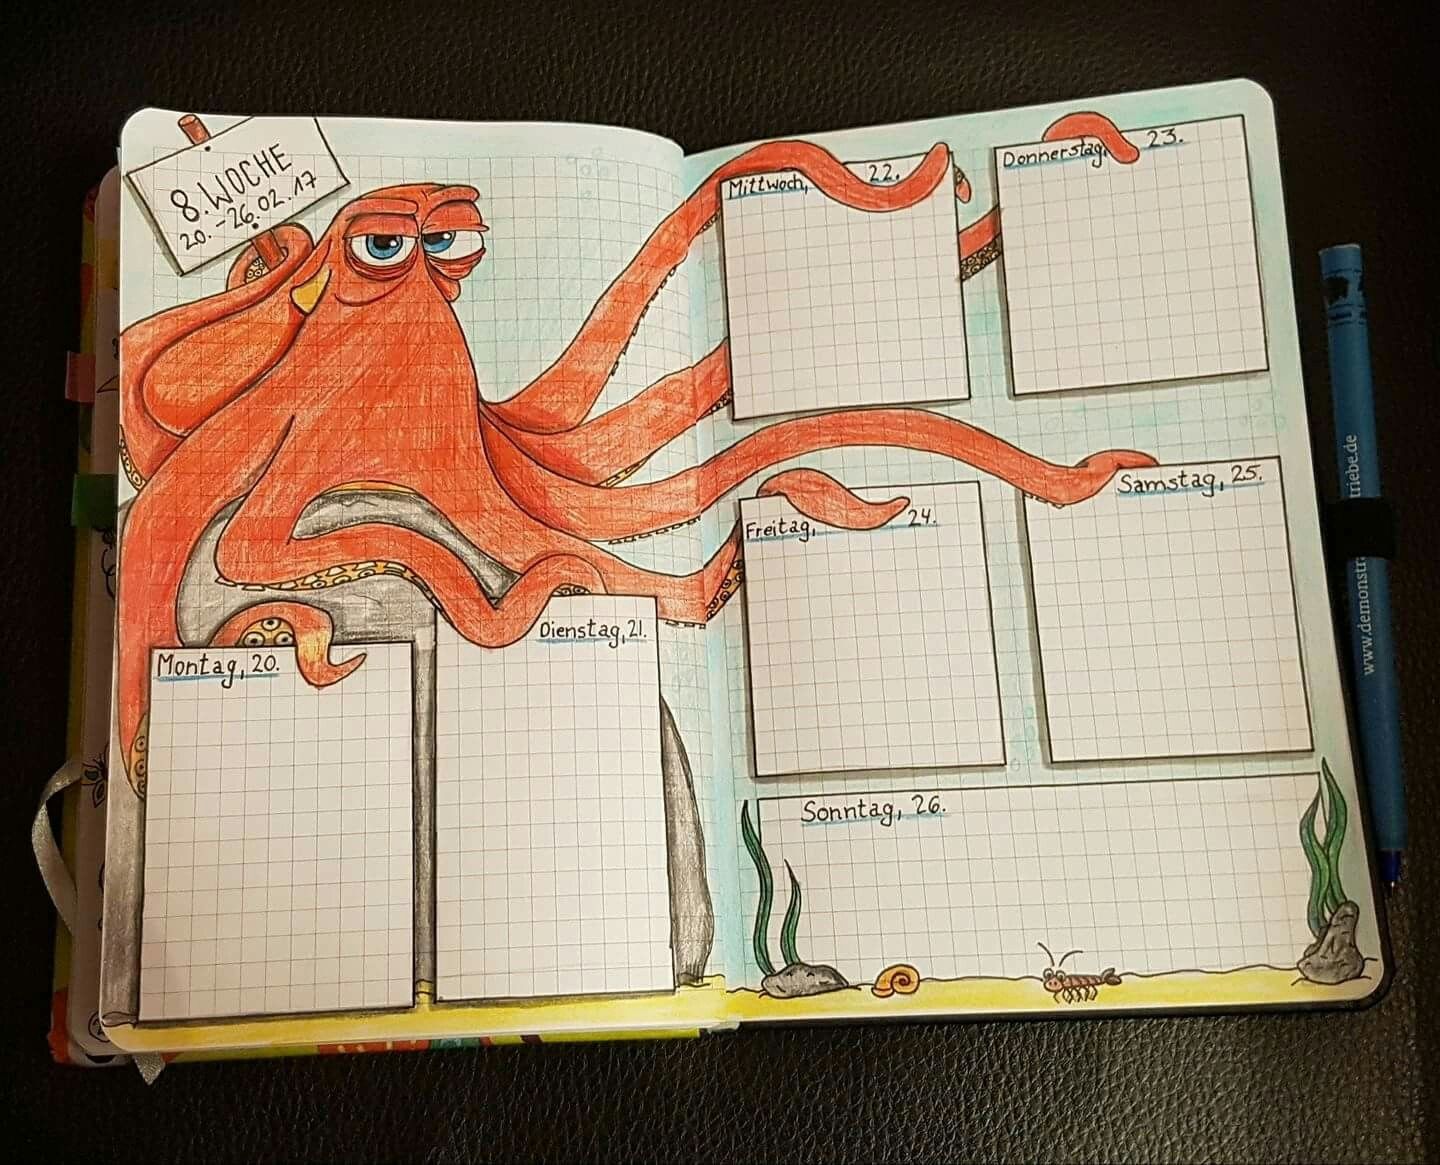 8. WOCHE
20. - 26.02.17
Montag, 20.
Dienstag, 21.
Mittwoch, 22.
Donnerstag, 23.
Freitag, 24.
Samstag, 25.
Sonntag, 26.
www.demonstr
triebe.de